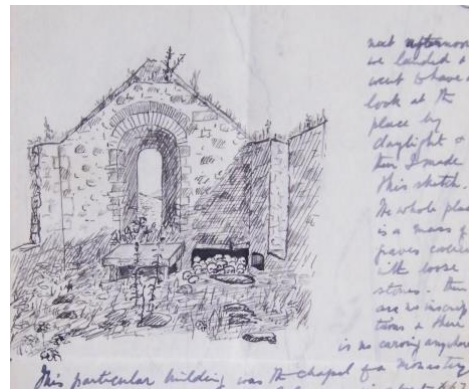 next afternoon
we landed &
went & have a
look at the
place by
daylight &
then I made
this sketch.
The whole place
is a mass of
graves covered
with loose
stones. There
are no inscrip
tions & there
is no carving anywhere
This particular building was the chapel of a monastery